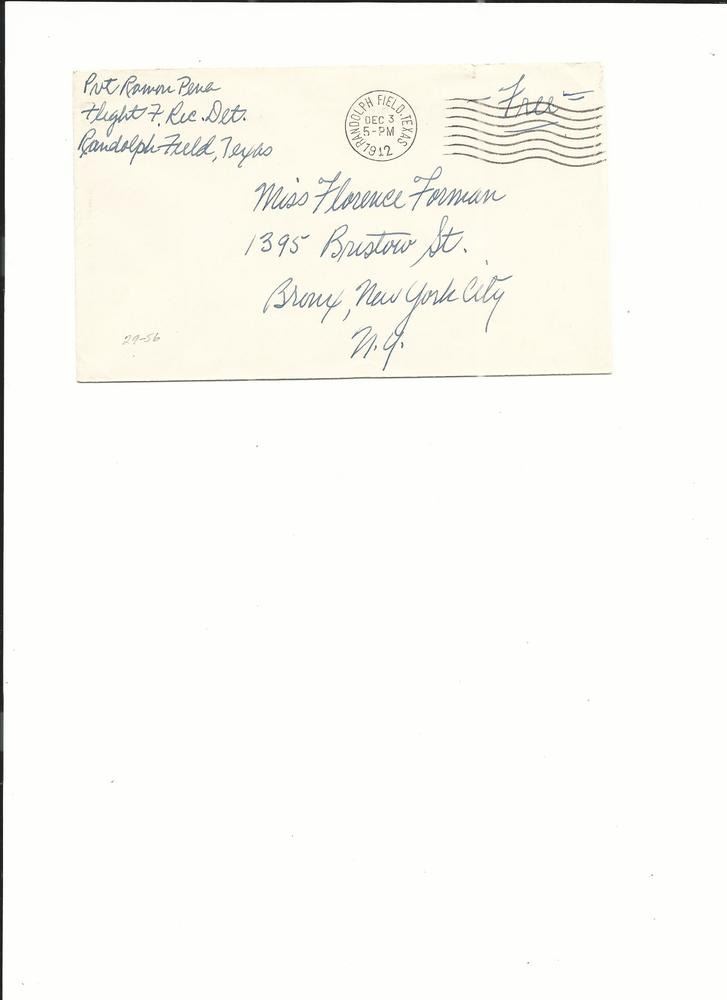 Pvt Ramon Pena
Flight F, Rec. Det.
Randolph Field, Texas
RANDOLPH FIELD, TEXAS
DEC 3
5-PM
1942
- Free -
Miss Florence Forman
1395 Bristow St.
Bronx, New York City
N.Y.
29-56